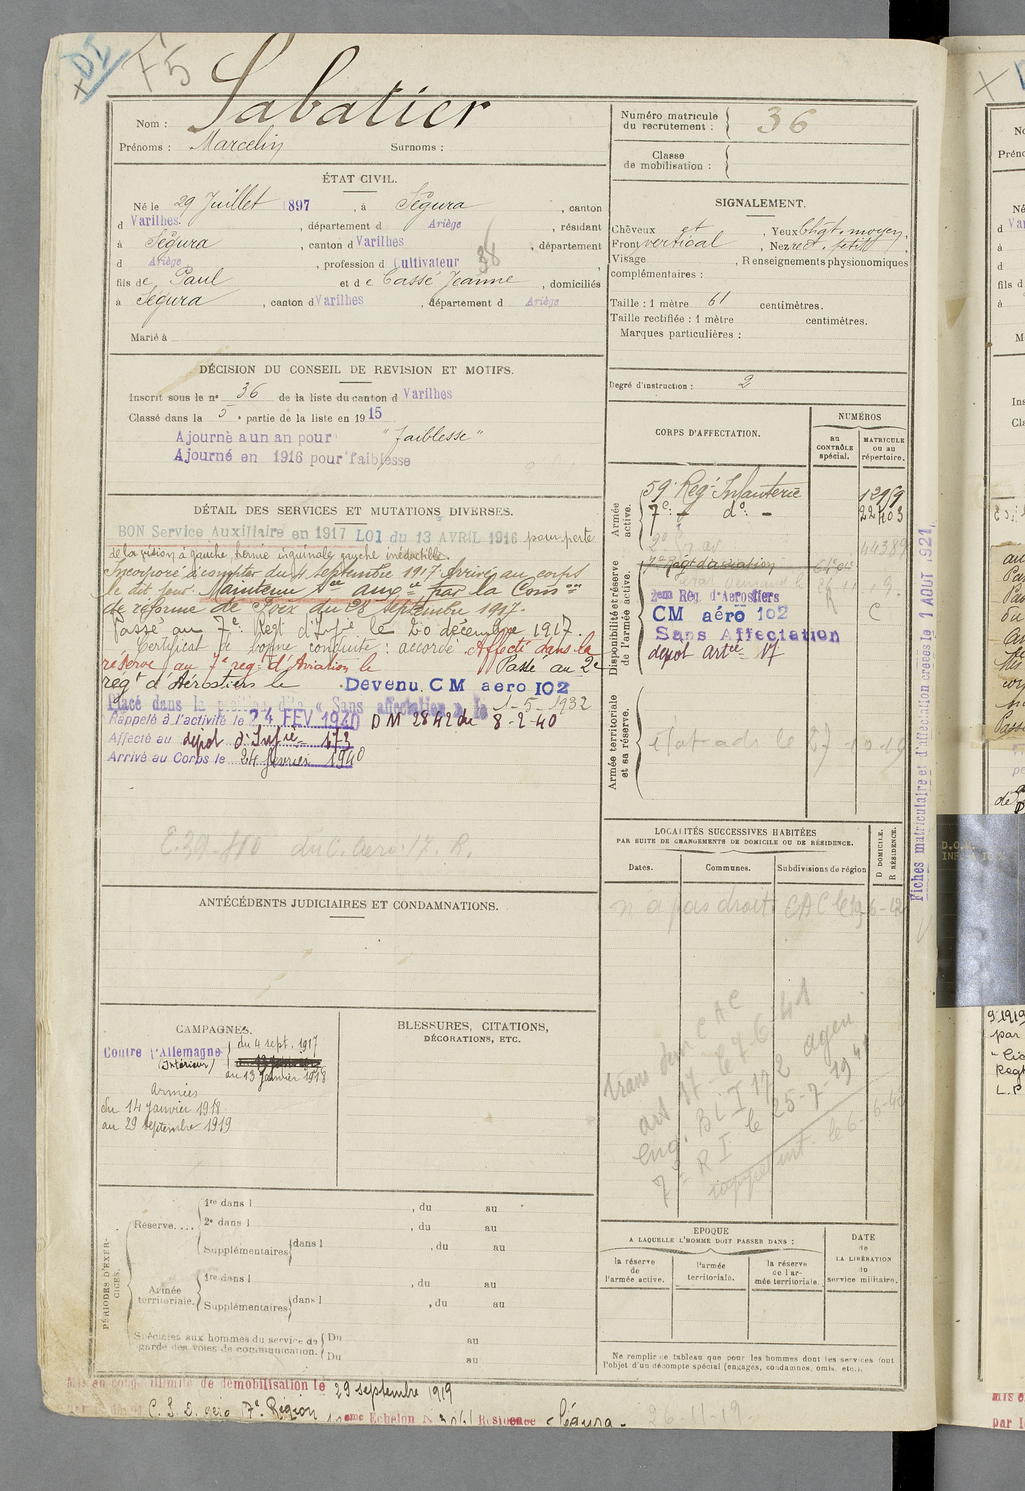 DI
F5
Nom : Sabatier
Prénoms : Marcelin Surnoms :
Numéro matricule du recrutement : 36
Classe de mobilisation :
ÉTAT CIVIL.
Né le 29 Juillet 1897, à Ségura, canton
d Varilhes, département d Ariège, résidant
à Ségura, canton d Varilhes, département
d Ariège, profession d Cultivateur 36
fils de Paul et de Cassé Jeanne, domiciliés
à Ségura, canton d Varilhes, département d Ariège
Marié à
SIGNALEMENT.
Cheveux Yeux
Front vertical, Nez rect. petit
Visage , Renseignements physionomiques
complémentaires :
Taille : 1 mètre 61 centimètres.
Taille rectifiée : 1 mètre centimètres.
Marques particulières :
Degré d'instruction : 2
DÉCISION DU CONSEIL DE REVISION ET MOTIFS.
Inscrit sous le n° 36 de la liste du canton d Varilhes
Classé dans la 5e partie de la liste en 1915
Ajourné a un an pour "faiblesse"
Ajourné en 1916 pour faiblesse
CORPS D'AFFECTATION.
NUMÉROS
au CONTRÔLE spécial.
MATRICULE ou au répertoire.
Armée active.
59e Reg. Infanterie 12919
7e - do - 22403
Disponibilité et réserve de l'armée active.
1er Regt d'aviation
2eme Rég. d'Aerostiers
CM aéro 102
Sans Affectation
dépot Artie 17
Armée territoriale et sa réserve.
DÉTAIL DES SERVICES ET MUTATIONS DIVERSES.
BON Service Auxiliaire en 1917 LOI du 13 AVRIL 1916 pour perte
de la vision à gauche hernie inguinale gauche irréductible.
Incorporé à compter du 4 septembre 1917. Arrivé au corps
le dit jour. Maintenu Sce auxre par la Comon
de réforme de Foix du 28 septembre 1917.
Passé au 7e Regt d'Infie le 20 décembre 1917.
Certificat de bonne conduite : accordé Affecté dans la
réserve au 1er reg. d'Aviation le Passé au 2e
regt d'Aérostiers le Devenu CM aero 102
Placé dans la position dite « Sans affectation » le 1-5-1932
Rappelé à l'activité le 24 FEV 1940 DM 2842 du 8-2-40
Affecté au dépot d'Infie 173
Arrivé au Corps le 24 février 1940
Fiches matriculaire et d'affectation créées le 1 AOUT 1921
LOCALITÉS SUCCESSIVES HABITÉES
PAR SUITE DE CHANGEMENTS DE DOMICILE OU DE RÉSIDENCE.
Dates. Communes. Subdivisions de région
D DOMICILE. R RÉSIDENCE.
n a pas droit CAC le 19-6-42
ANTÉCÉDENTS JUDICIAIRES ET CONDAMNATIONS.
CAMPAGNES.
Contre l'Allemagne
(Intérieur)
du 4 sept. 1917
au 13 Janvier 1918
Armées
du 14 Janvier 1918
au 29 septembre 1919
BLESSURES, CITATIONS,
DÉCORATIONS, ETC.
trans CAC
art 17 le 9 6 41
eng. BLI 172 agen
7e RI le 25-7-1941
PÉRIODES D'EXERCICES.
Réserve....
1re dans l , du au
2e dans l , du au
Supplémentaires dans l , du au
Armée territoriale.
1re dans l , du au
Supplémentaires dans l , du au
Spéciales aux hommes du service de garde des voies de communication.
Du au
Du au
EPOQUE
A LAQUELLE L'HOMME DOIT PASSER DANS :
la réserve de l'armée active.
l'armée territoriale.
la réserve de l'armée territoriale.
DATE de LA LIBÉRATION du service militaire.
Ne remplir ce tableau que pour les hommes dont les services font
l'objet d'un décompte spécial (engagés, condamnés, omis, etc.).
Mis en congé illimité de démobilisation le 29 septembre 1919
7e Région eme Echelon Résidence Ségura.
26-11-19